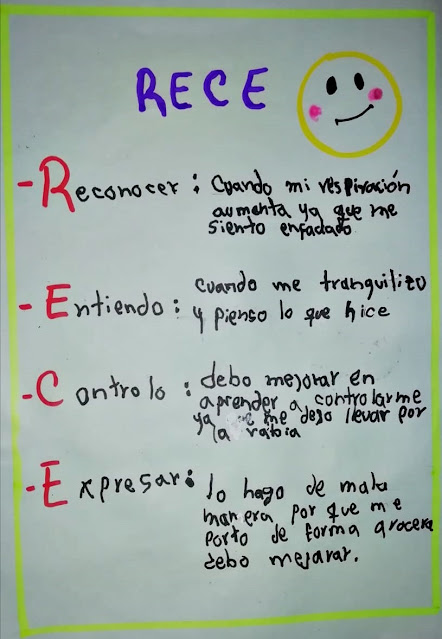 RECE
-Reconocer: Cuando mi respiración
aumenta ya que me
siento enfadado
-Entiendo: cuando me tranquilizo
y pienso lo que hice
-Controlo: debo mejorar en
aprender a controlarme
ya me dejo llevar por
la rabia
-Expresar: lo hago de mala
manera por que me
porto de forma grocera
debo mejarar.